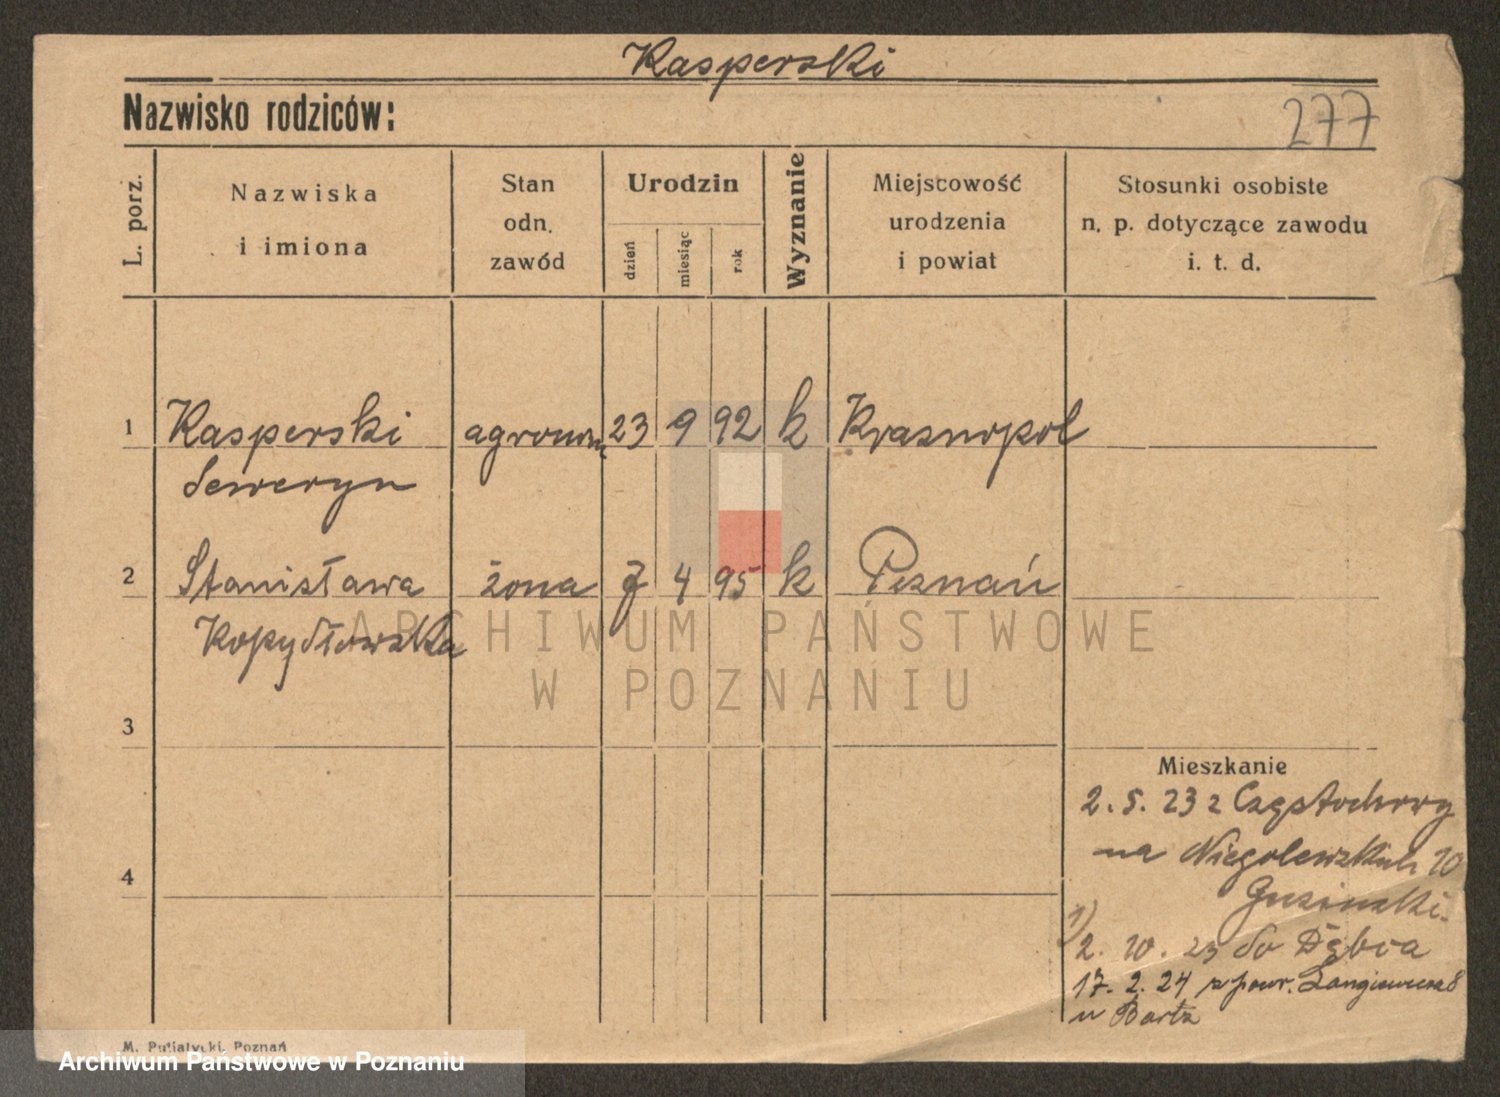 Kasperski
Nazwisko rodziców:
277
L. porz.
Nazwiska
i imiona
Stan
odn.
zawód
Urodzin
dzień
miesiąc
rok
Wyznanie
Miejscowość
urodzenia
i powiat
Stosunki osobiste
n. p. dotyczące zawodu
i. t. d.
1 Kasperski agronom 23 9 92 k Krasnopol
Seweryn
2 Stanisława żona 7 4 95 k Poznań
Kopydłowska
ARCHIWUM PAŃSTWOWE
W POZNANIU
3
Mieszkanie
2. 5. 23 z Częstochowy
na Niegolewskich 10
4
1)
2. 10. 23 do Dębca
17. 2. 24 z pow. Langiewicza 8
u Bartz
M. Putiatycki, Poznań
Archiwum Państwowe w Poznaniu